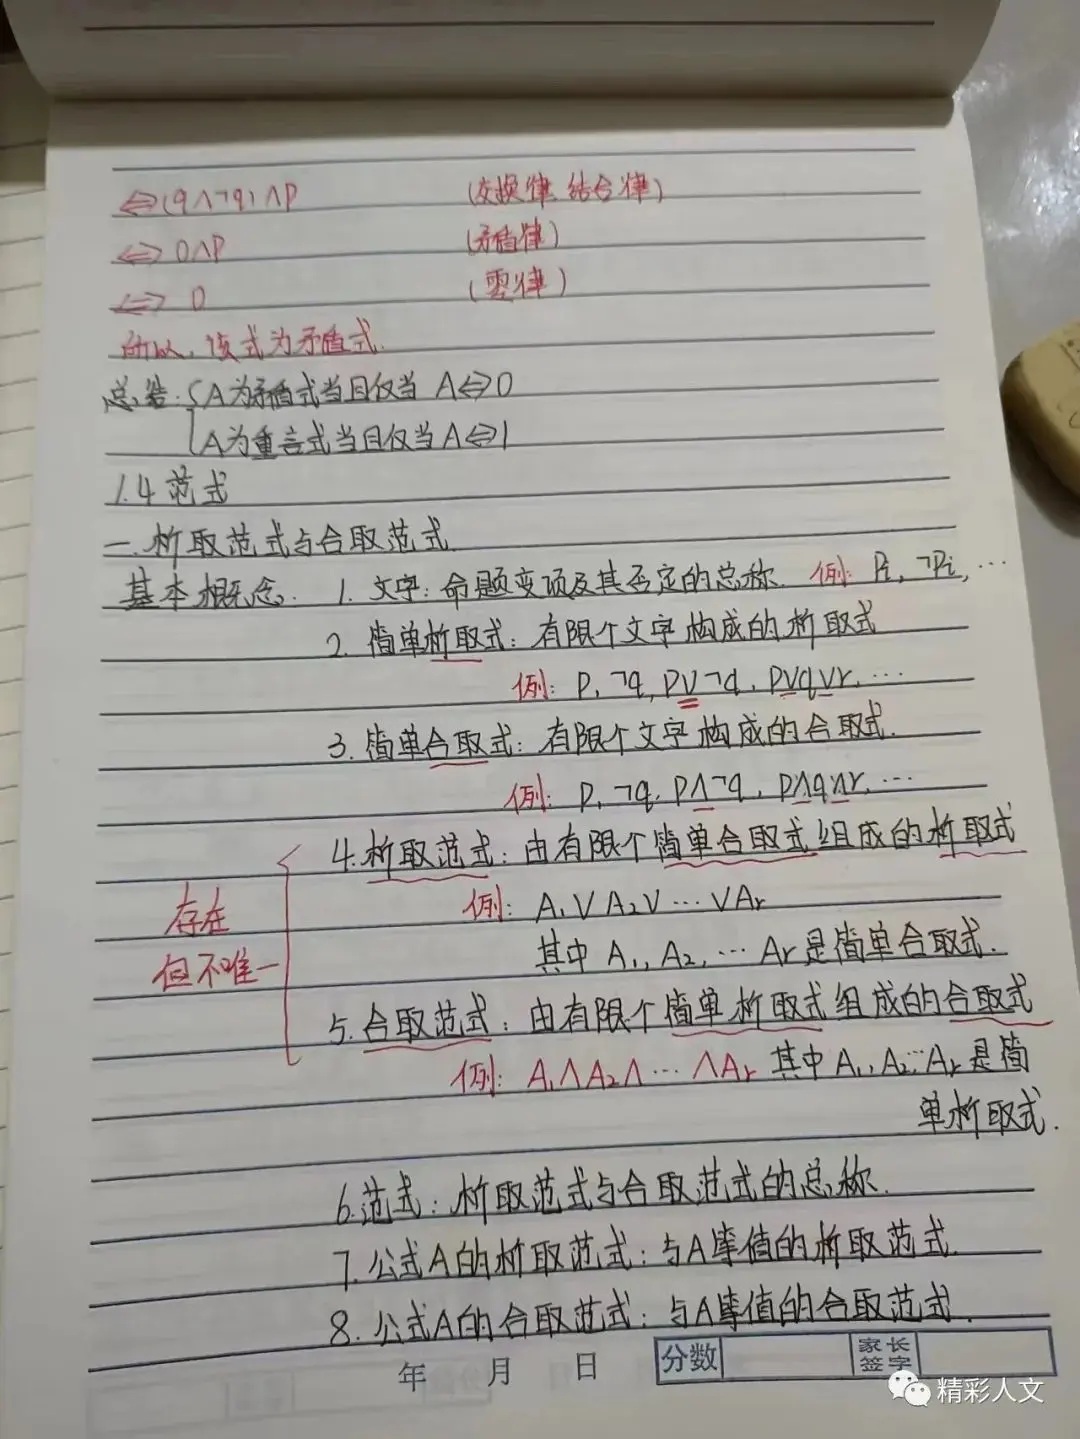 ⇔(q∧¬q)∧p (交换律 结合律)
⇔ 0∧p (矛盾律)
⇔ 0 (零律)
所以,该式为矛盾式.
总结:{A为矛盾式当且仅当 A⇔0
A为重言式当且仅当A⇔1
1.4 范式
一.析取范式与合取范式.
基本概念. 1. 文字:命题变项及其否定的总称. 例: Pi, ¬Pi, …
2. 简单析取式:有限个文字构成的析取式
例: p, ¬q, p∨¬q, p∨q∨r, …
3. 简单合取式:有限个文字构成的合取式.
例: p, ¬q, p∧¬q, p∧q∧r, …
4. 析取范式:由有限个简单合取式组成的析取式
存在
例: A₁∨A₂∨…∨Ar
但不唯一
其中 A₁, A₂, … Ar是简单合取式.
5. 合取范式:由有限个简单析取式组成的合取式
例: A₁∧A₂∧…∧Ar 其中A₁, A₂…Ar是简
单析取式.
6. 范式:析取范式与合取范式的总称.
7. 公式A的析取范式:与A等值的析取范式.
8. 公式A的合取范式:与A等值的合取范式.
年 月 日 分数 家长签字
精彩人文